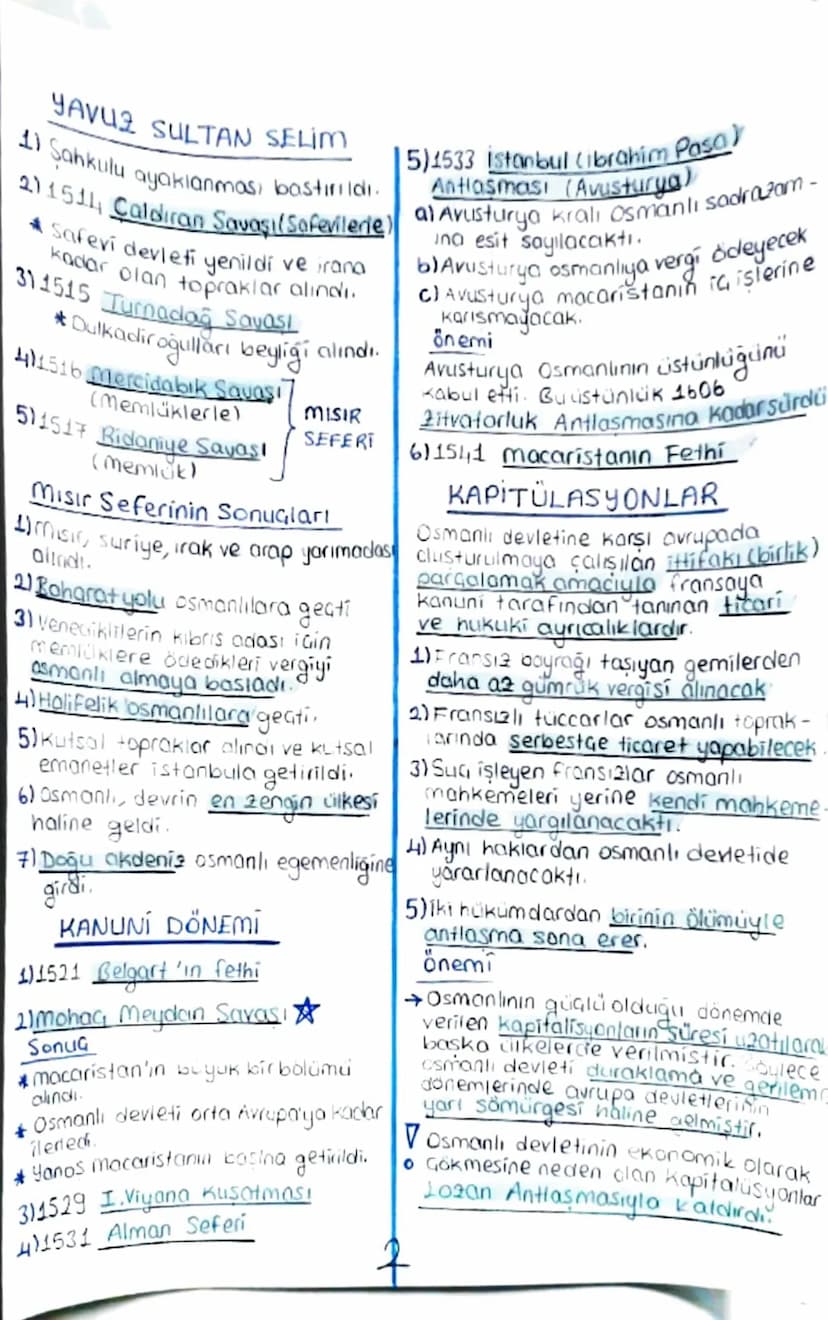 YAVUZ SULTAN SELİM
1) Şahkulu ayaklanması bastırıldı.
2) 1514 Çaldıran Savaşı (Safevilerle)
* Safevi devleti yenildi ve irana
kadar olan topraklar alındı.
3) 1515 Turnadağ Savaşı
* Dulkadiroğulları beyliği alındı.
4) 1516 Mercidabık Savaşı
(Memlüklerle)
5) 1517 Ridaniye Savaşı
(Memlük)
MISIR
SEFERİ
Mısır Seferinin Sonuçları
1) Mısır, suriye, ırak ve arap yarımadası
alındı.
2) Baharat yolu osmanlılara geçti
3) Venediklilerin kıbrıs adası için
memlüklere ödedikleri vergiyi
osmanlı almaya başladı.
4) Halifelik osmanlılara geçti.
5) Kutsal topraklar alındı ve kutsal
emanetler istanbula getirildi.
6) Osmanlı, devrin en zengin ülkesi
haline geldi.
7) Doğu akdeniz osmanlı egemenliğine
girdi.
KANUNİ DÖNEMİ
1) 1521 Belgart'ın fethi
2) Mohaç Meydan Savaşı
Sonuç
* macaristan'ın büyük bir bölümü
alındı.
* Osmanlı devleti orta Avrupa'ya kadar
ilerledi.
* Yanos macaristanın başına getirildi.
3) 1529 I. Viyana Kuşatması
4) 1531 Alman Seferi
5) 1533 İstanbul (ibrahim Paşa)
Antlaşması (Avusturya)
a) Avusturya kralı Osmanlı sadrazam-
ına eşit sayılacaktı.
b) Avusturya osmanlıya vergi ödeyecek
c) Avusturya macaristanın iç işlerine
karışmayacak.
önemi
Avusturya Osmanlının üstünlüğünü
kabul etti. Bu üstünlük 1606
Zitvatorluk Antlaşmasına kadar sürdü
6) 1541 macaristanın Fethi
KAPİTÜLASYONLAR
Osmanlı devletine karşı avrupada
oluşturulmaya çalışılan ittifakı (birlik)
parçalamak amacıyla fransaya
kanuni tarafından tanınan ticari
ve hukuki ayrıcalıklardır.
1) Fransız bayrağı taşıyan gemilerden
daha az gümrük vergisi alınacak
2) Fransızlı tüccarlar osmanlı toprak-
larında serbestçe ticaret yapabilecek.
3) Suç işleyen fransızlar osmanlı
mahkemeleri yerine kendi mahkeme-
lerinde yargılanacaktı.
4) Aynı haklardan osmanlı devletide
yararlanacaktı.
5) iki hükümdardan birinin ölümüyle
antlaşma sona erer.
önemi
→ Osmanlının güçlü olduğu dönemde
verilen kapitalisyonların süresi uzatılarak
başka ülkelerde verilmiştir. Böylece
osmanlı devleti duraklama ve gerileme
dönemlerinde avrupa devletlerinin
yarı sömürgesi haline gelmiştir.
Osmanlı devletinin ekonomik olarak
çökmesine neden olan kapitalüsyonlar
Lozan Antlaşmasıyla kaldırdı.
2